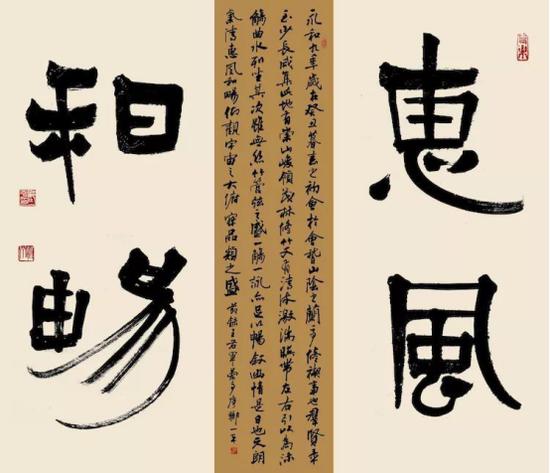 惠風
永和九年歲在癸丑暮春之初會於會稽山陰之蘭亭修禊事也羣賢畢
至少長咸集此地有崇山峻領茂林修竹又有清流激湍暎帶左右引以為流
觴曲水列坐其次雖無絲竹管弦之盛一觴一詠亦足以暢敘幽情是日也天朗
氣清惠風和暢仰觀宇宙之大俯察品類之盛
和暢